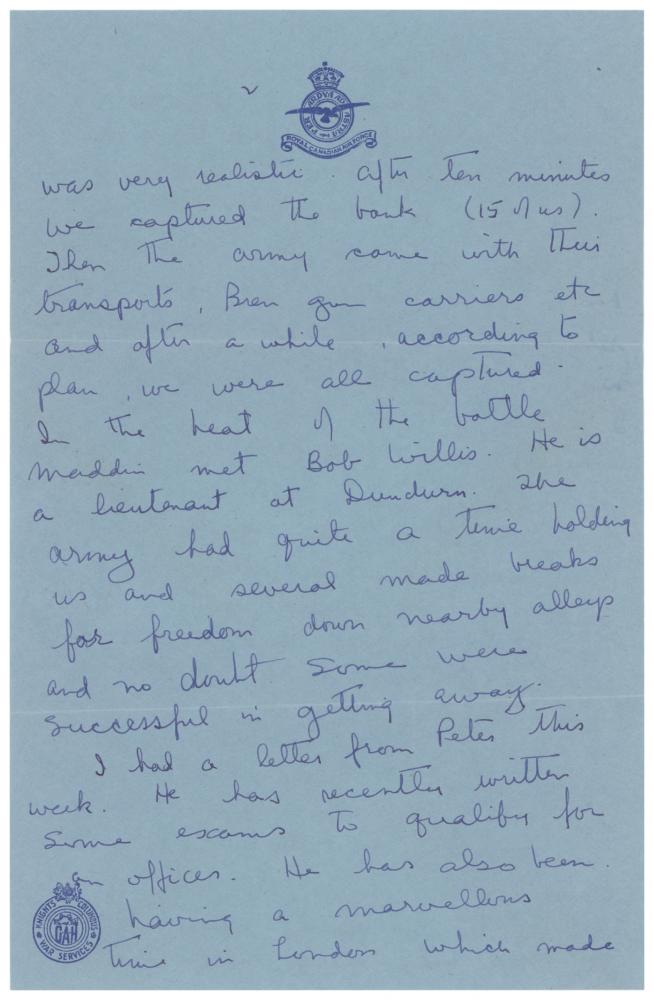 2
PER ARDVA AD ASTRA
ROYAL CANADIAN AIR FORCE
was very realistic. After ten minutes
we captured the bank (15 of us).
Then the army came with their
transports, Bren gun carriers etc
and after a while, according to
plan, we were all captured.
In the heat of the battle
Maddin met Bob Willis. He is
a lieutenant at Dundurn. The
army had quite a time holding
us and several made breaks
for freedom down nearby alleys
and no doubt some were
successful in getting away.
I had a letter from Peter this
week. He has recently written
some exams to qualify for
an officer. He has also been
having a marvellous
time in London which made
KNIGHTS OF COLUMBUS
CAH
WAR SERVICES